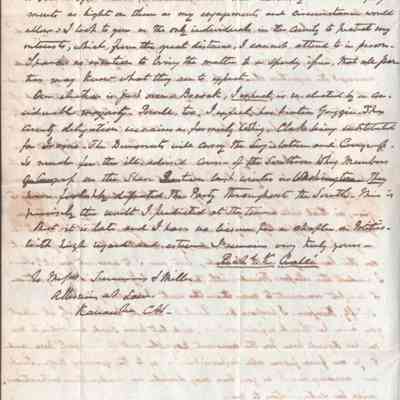 ments as light on them as my engagements and circumstances would
allow & I look to you as the only individuals in the County to protect my
interests, which, from the great distance, I cannot attend to in person.
I spare no exertion to bring the matter to a speedy issue, that all par-
ties may know what they are to expect.
Our election is just over & Bocock, I expect, is re-elected by a con-
siderable majority. Powell, too, I expect, has beaten Goggin. The
County delegation remains as formerly Whig, Clark being substituted
for Irvine. The Democrats will carry the Legislature and Congress.
So much for the ill-advised course of the Southern Whig Members
of Congress on the Slave Question last winter in Washington. They
have probably defeated the Party throughout the South. This is
precisely the result I predicted at the time.
But it is late and I have no leisure for a chapter on Politics.
With high regard and esteem I remain very truly yours—
Rich. K. Crallé
To Messrs Summers & Miller
Attornies at Law
Kanawha C.H.